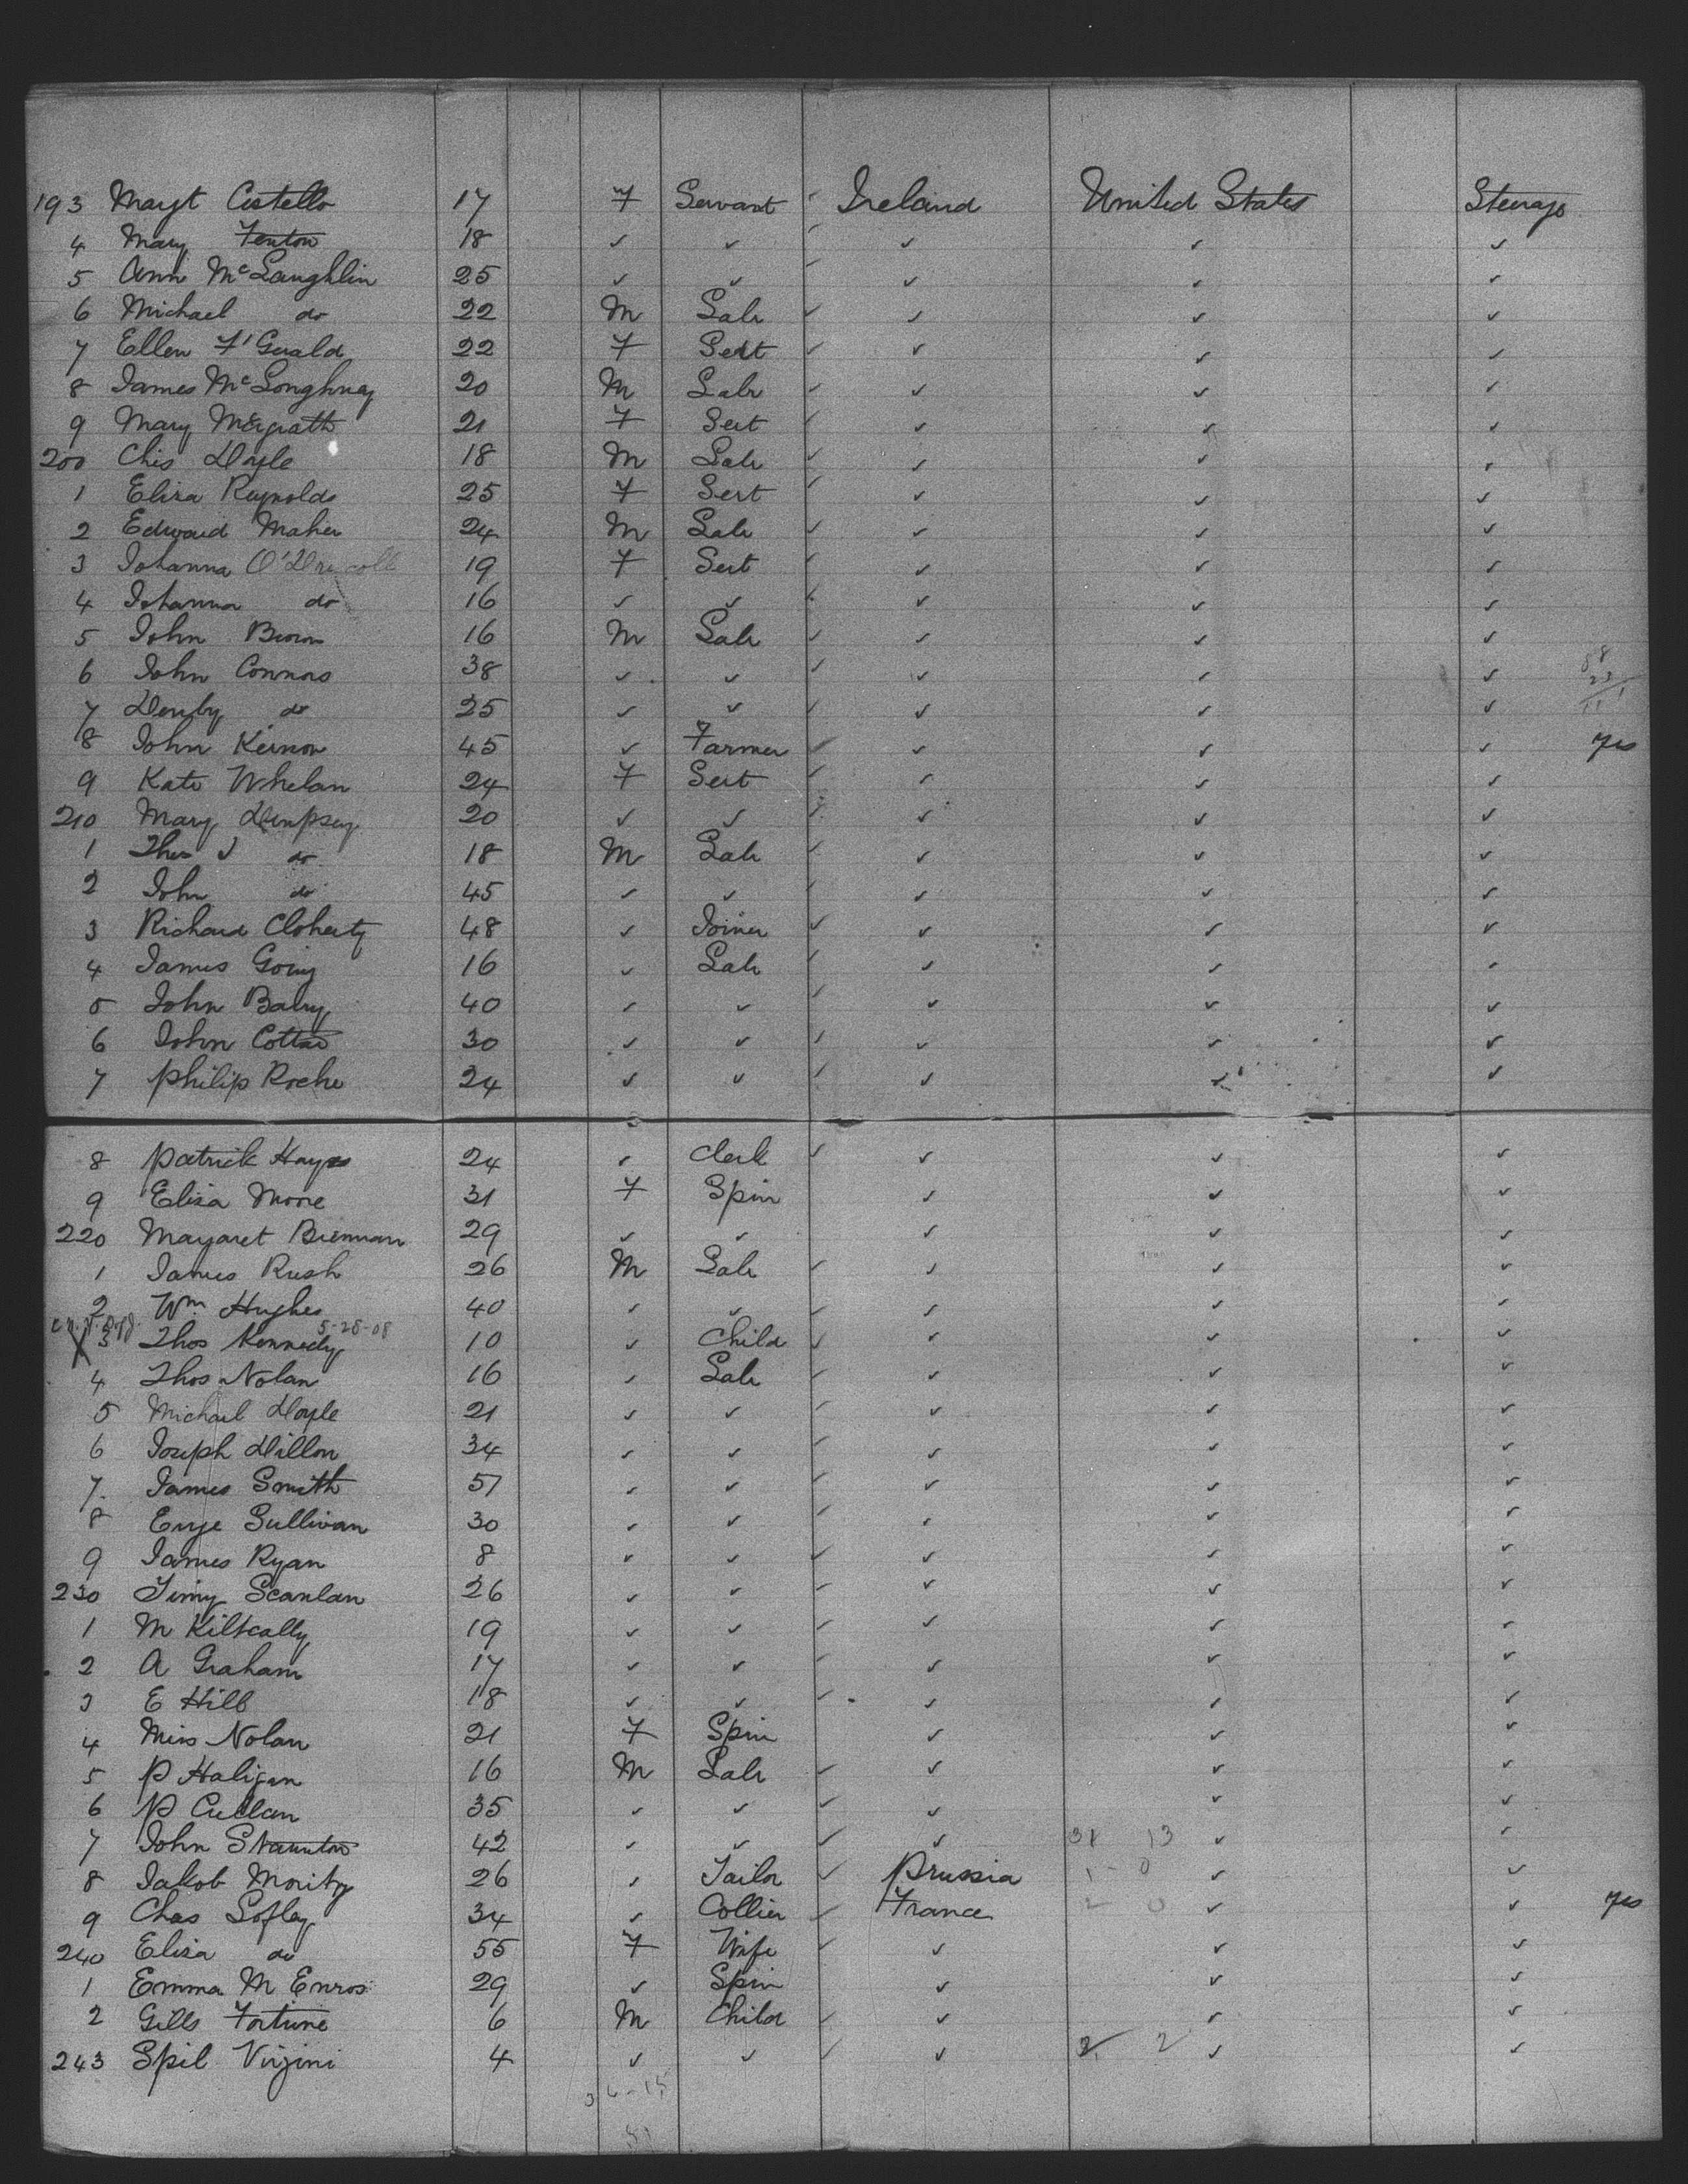 193 Margt Costello 17 F Servant ✓ Ireland United States Steerage
4 Mary Fenton 18 ✓ ✓ ✓ ✓ ✓ ✓
5 Ann McLaughlin 25 ✓ ✓ ✓ ✓ ✓ ✓
6 Michael do 22 M Labr ✓ ✓ ✓ ✓
7 Ellen F'Gerald 22 F Sert ✓ ✓ ✓ ✓
8 James McLoughney 20 M Labr ✓ ✓ ✓ ✓
9 Mary McGrath 21 F Sert ✓ ✓ ✓ ✓
200 Chis Doyle 18 M Labr ✓ ✓ ✓ ✓
1 Eliza Reynolds 25 F Sert ✓ ✓ ✓ ✓
2 Edward Maher 24 M Labr ✓ ✓ ✓ ✓
3 Johanna O'Driscoll 19 F Sert ✓ ✓ ✓ ✓
4 Johanna do 16 ✓ ✓ ✓ ✓ ✓ ✓
5 John Brown 16 M Labr ✓ ✓ ✓ ✓
6 John Connors 38 ✓ ✓ ✓ ✓ ✓ ✓
7 Denby do 25 ✓ ✓ ✓ ✓ ✓ ✓
8 John Kernon 45 ✓ Farmer ✓ ✓ ✓ ✓ yes
9 Kate Whelan 24 F Sert ✓ ✓ ✓ ✓
210 Mary Dempsey 20 ✓ ✓ ✓ ✓ ✓ ✓
1 Thos J do 18 M Labr ✓ ✓ ✓ ✓
2 John do 45 ✓ ✓ ✓ ✓ ✓ ✓
3 Richard Cloherty 48 ✓ Joiner ✓ ✓ ✓ ✓
4 James Going 16 ✓ Labr ✓ ✓ ✓ ✓
5 John Balry 40 ✓ ✓ ✓ ✓ ✓ ✓
6 John Cotter 30 ✓ ✓ ✓ ✓ ✓ ✓
7 Philip Roche 24 ✓ ✓ ✓ ✓ ✓ ✓
8 Patrick Hayes 24 ✓ Clerk ✓ ✓ ✓ ✓
9 Eliza Moore 31 F Spin ✓ ✓ ✓
220 Margaret Brennan 29 ✓ ✓ ✓ ✓ ✓
1 James Rush 26 M Labr ✓ ✓ ✓ ✓
2 Wm Hughes 40 ✓ ✓ ✓ ✓ ✓
5-28-08
X 3 Thos Kennedy 10 ✓ Child ✓ ✓ ✓ ✓
4 Thos Nolan 16 ✓ Labr ✓ ✓ ✓ ✓
5 Michael Doyle 21 ✓ ✓ ✓ ✓ ✓ ✓
6 Joseph Dillon 34 ✓ ✓ ✓ ✓ ✓ ✓
7 James Smith 51 ✓ ✓ ✓ ✓ ✓ ✓
8 Euge Sullivan 30 ✓ ✓ ✓ ✓ ✓ ✓
9 James Ryan 8 ✓ ✓ ✓ ✓ ✓ ✓
230 Jimy Scanlan 26 ✓ ✓ ✓ ✓ ✓ ✓
1 M Kiltcally 19 ✓ ✓ ✓ ✓ ✓ ✓
2 A Graham 17 ✓ ✓ ✓ ✓ ✓ ✓
3 E Hill 18 ✓ ✓ ✓ ✓ ✓ ✓
4 Miss Nolan 21 F Spin ✓ ✓ ✓
5 P Haligan 16 M Labr ✓ ✓ ✓ ✓
6 P Cullan 35 ✓ ✓ ✓ ✓ ✓ ✓
7 John Staunton 42 ✓ ✓ ✓ ✓ 31 13 ✓ ✓
8 Jakob Moritz 26 ✓ Tailor ✓ Prussia 1 - 0 ✓ ✓
9 Chas Soflay 34 ✓ Collier ✓ France 2 0 ✓ ✓ yes
240 Eliza do 55 F Wife ✓ ✓ ✓ ✓
1 Emma M Enros 29 ✓ Spin ✓ ✓ ✓
2 Gills Fortune 6 M Child ✓ ✓ ✓ ✓
243 Spil Virjini 4 ✓ ✓ ✓ ✓ 2 2 ✓ ✓